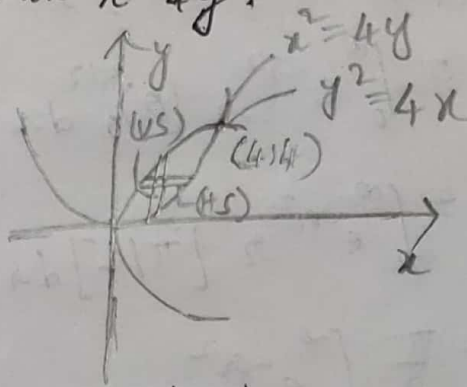 x² = 4y
y
y² = 4x
(VS)
(4,4)
(HS)
x